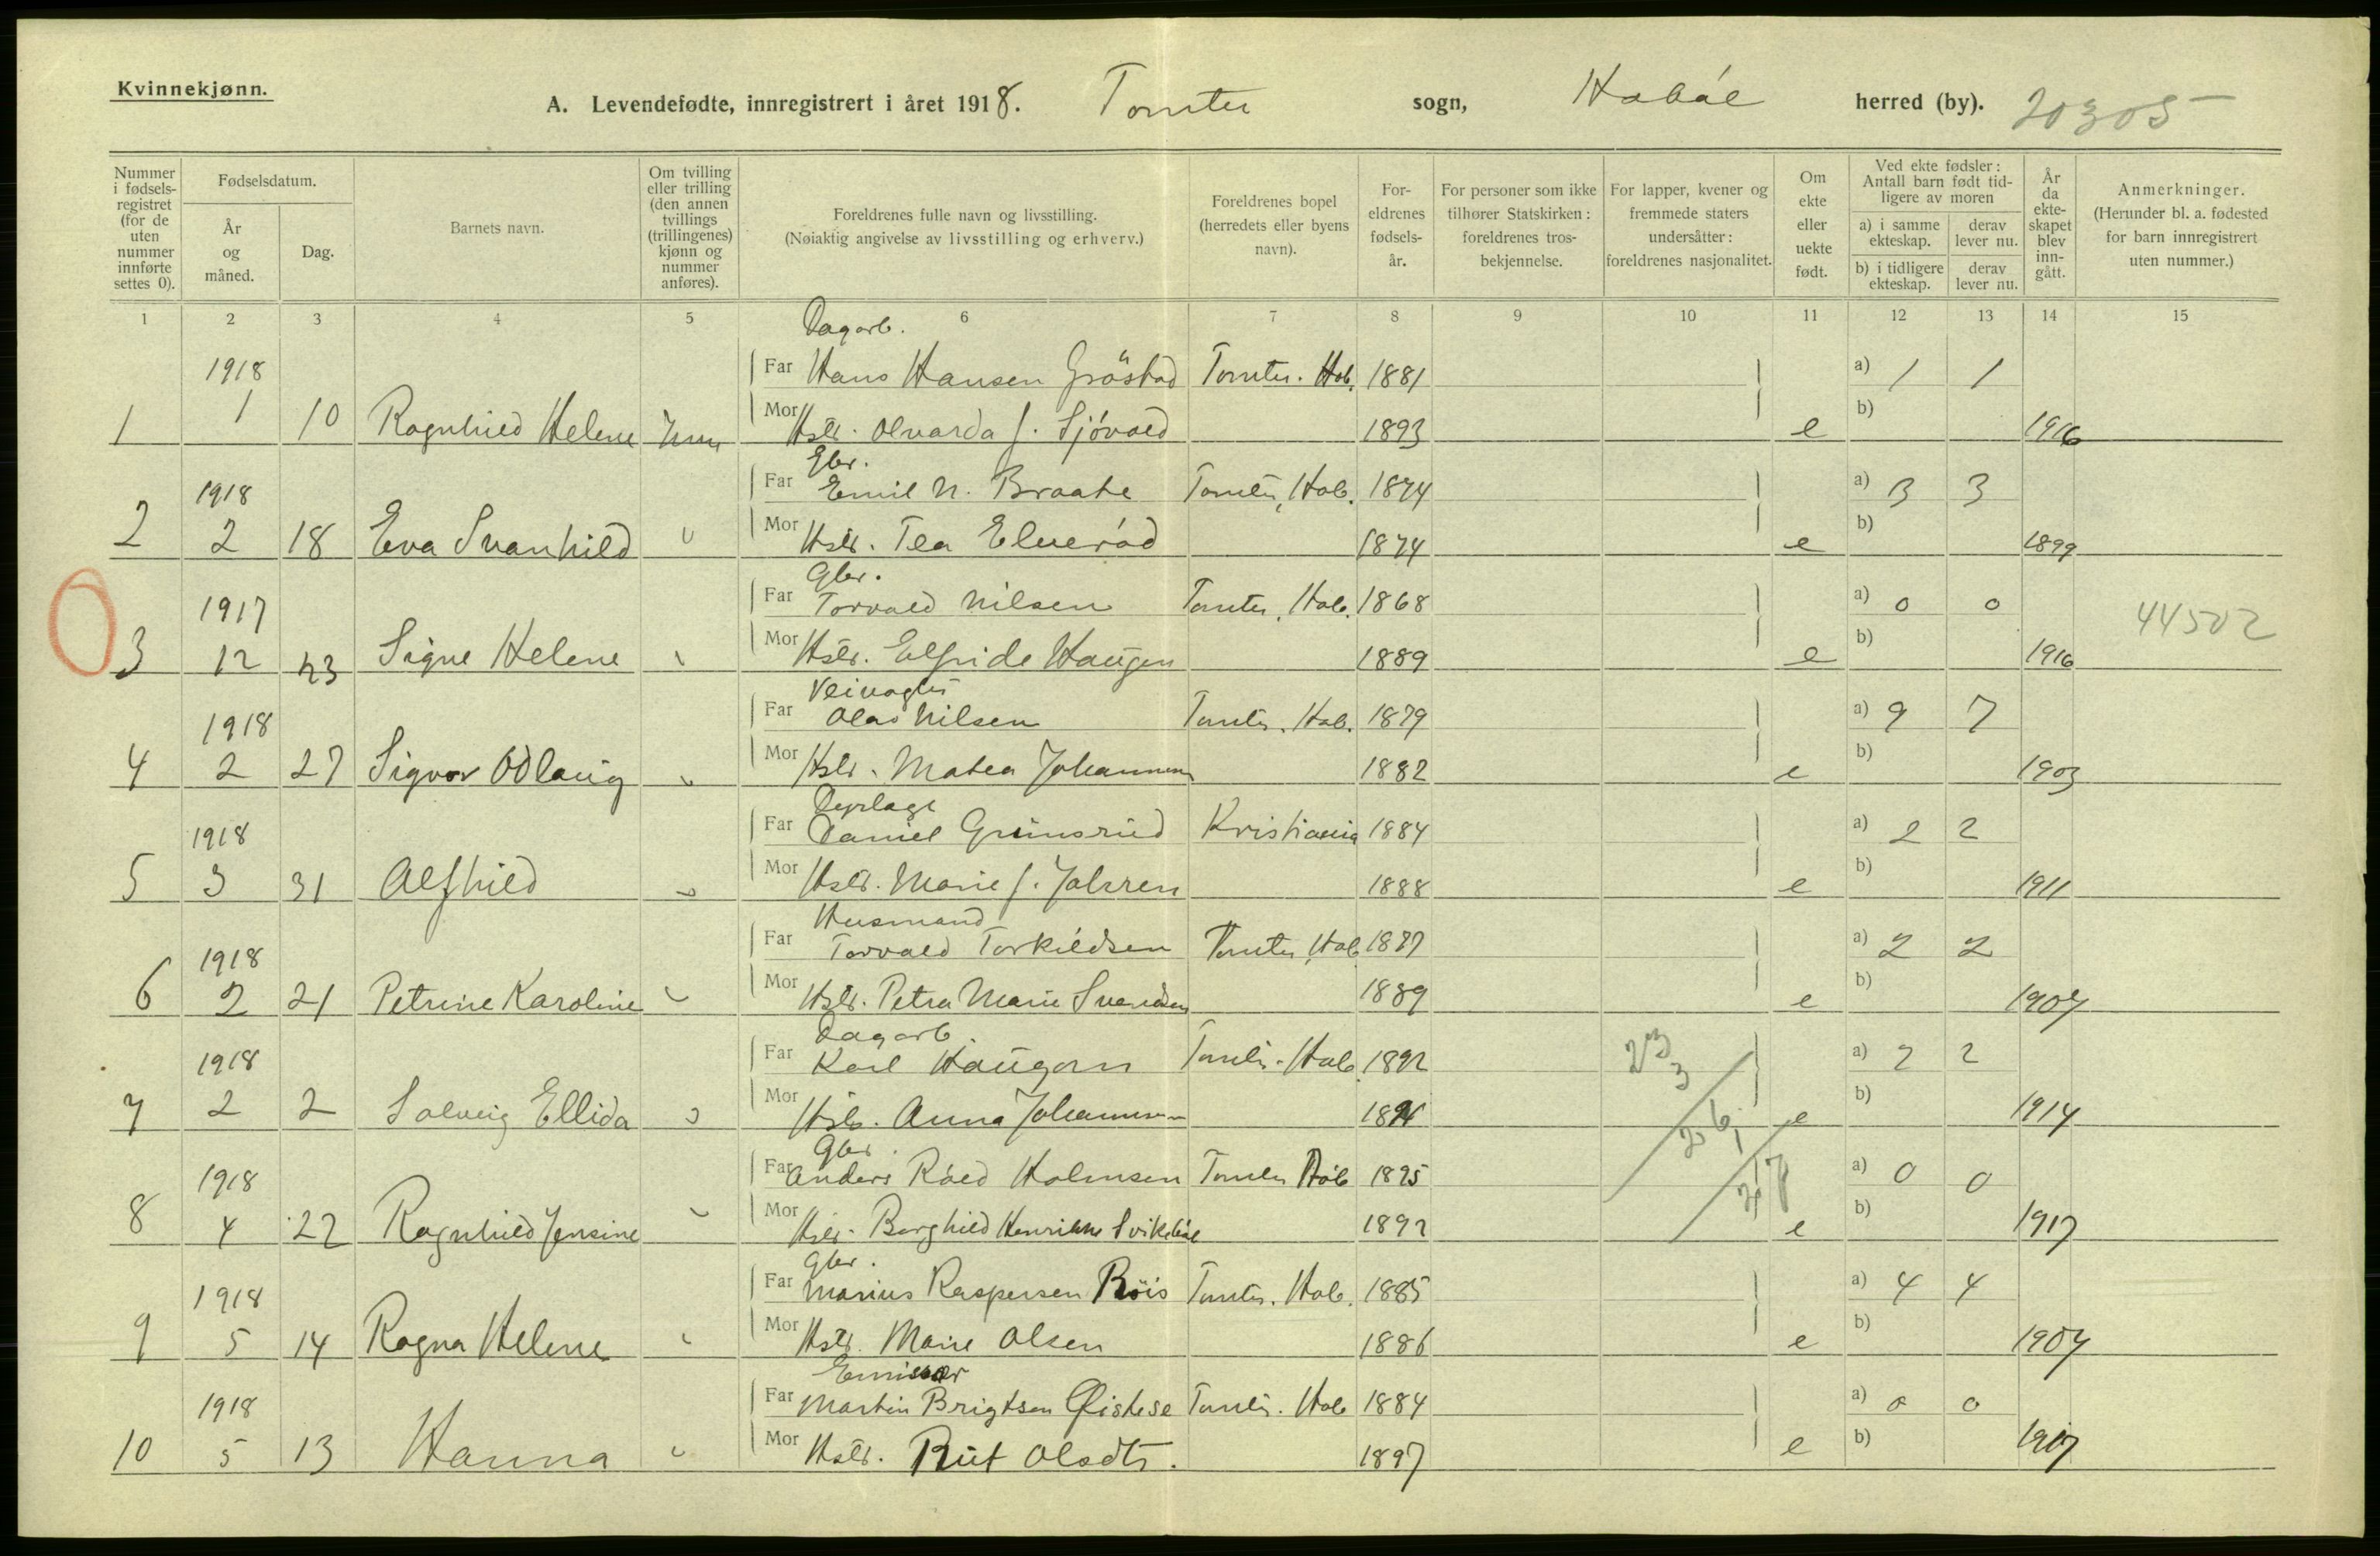 Kvinnekjønn.
A. Levendefødte, innregistrert i året 1918. Tomter sogn, Hobøl herred (by). 20305
Nummer i fødsels-registret (for de uten nummer innførte settes 0).
Fødselsdatum.
År og måned.
Dag.
Barnets navn.
Om tvilling eller trilling (den annen tvillings (trillingenes) kjønn og nummer anføres).
Foreldrenes fulle navn og livsstilling.
(Nøiaktig angivelse av livsstilling og erhverv.)
Foreldrenes bopel (herredets eller byens navn).
For-eldrenes fødsels-år.
For personer som ikke tilhører Statskirken: foreldrenes tros-bekjennelse.
For lapper, kvener og fremmede staters undersåtter: foreldrenes nasjonalitet.
Om ekte eller uekte født.
Ved ekte fødsler: Antall barn født tid-ligere av moren
a) i samme ekteskap.
derav lever nu.
b) i tidligere ekteskap.
derav lever nu.
År da ekte-skapet blev inn-gått.
Anmerkninger.
(Herunder bl. a. fødested for barn innregistrert uten nummer.)
1 2 3 4 5 6 7 8 9 10 11 12 13 14 15
Dagarb.
1918 Far Hans Hansen Gråstad Tomter. Hob. 1881 a) 1 1
1 1 10 Ragnhild Helene Mor Hstr. Olvarda J. Sjóvold 1893 e b) 1916
Gbr.
1918 Far Emil N. Braate Tomter, Hob. 1874 a) 3 3
2 2 18 Eva Svanhild Mor Hstr. Tea Elverød 1874 e b) 1899
Gbr.
1917 Far Torvald Nilsen Tomter, Hob. 1868 a) 0 0 44502
3 12 23 Signe Helene Mor Hstr. Elfride Haugen 1889 e b) 1916
Veivogter
1918 Far Olav Nilsen Tomter. Hob. 1879 a) 9 7
4 2 27 Sigvor Odlaug Mor Hstr. Matea Johannesen 1882 e b) 1903
Dyrlæge
1918 Far Daniel Grimsrud Kristiania 1884 a) 2 2
5 3 31 Alfhild Mor Hstr. Marie J. 1888 e b) 1911
Husmand
1918 Far Torvald Torkildsen Tomter, Hob 1887 a) 2 2
6 2 21 Petrine Karoline Mor Hstr. Petra Marie Svendsen 1889 e b) 1907
Dagarb.
1918 Far Karl Haugorn Tomter. Hob. 1892 23 3 a) 2 2
7 2 2 Solveig Ellida Mor Hstr. Anna Johannesen 1894 26 1 e b) 1914
Gbr.
1918 Far Anders Råed Holmsen Tomter Hob 1895 a) 0 0
8 4 22 Ragnhild Jensine Mor Hstr. Borghild Henrikke 1892 27 e b) 1917
Gbr.
1918 Far Marius Kaspersen Röis Tomter. Hob. 1885 a) 4 4
9 5 14 Ragna Helene Mor Hstr. Marie Olsen 1886 e b) 1907
Emissær
1918 Far Martin Brigtsen Øistese Tomter. Hob 1884 a) 0 0
10 5 13 Hanna Mor Hstr. Rut Olsdtr. 1897 e b) 1917